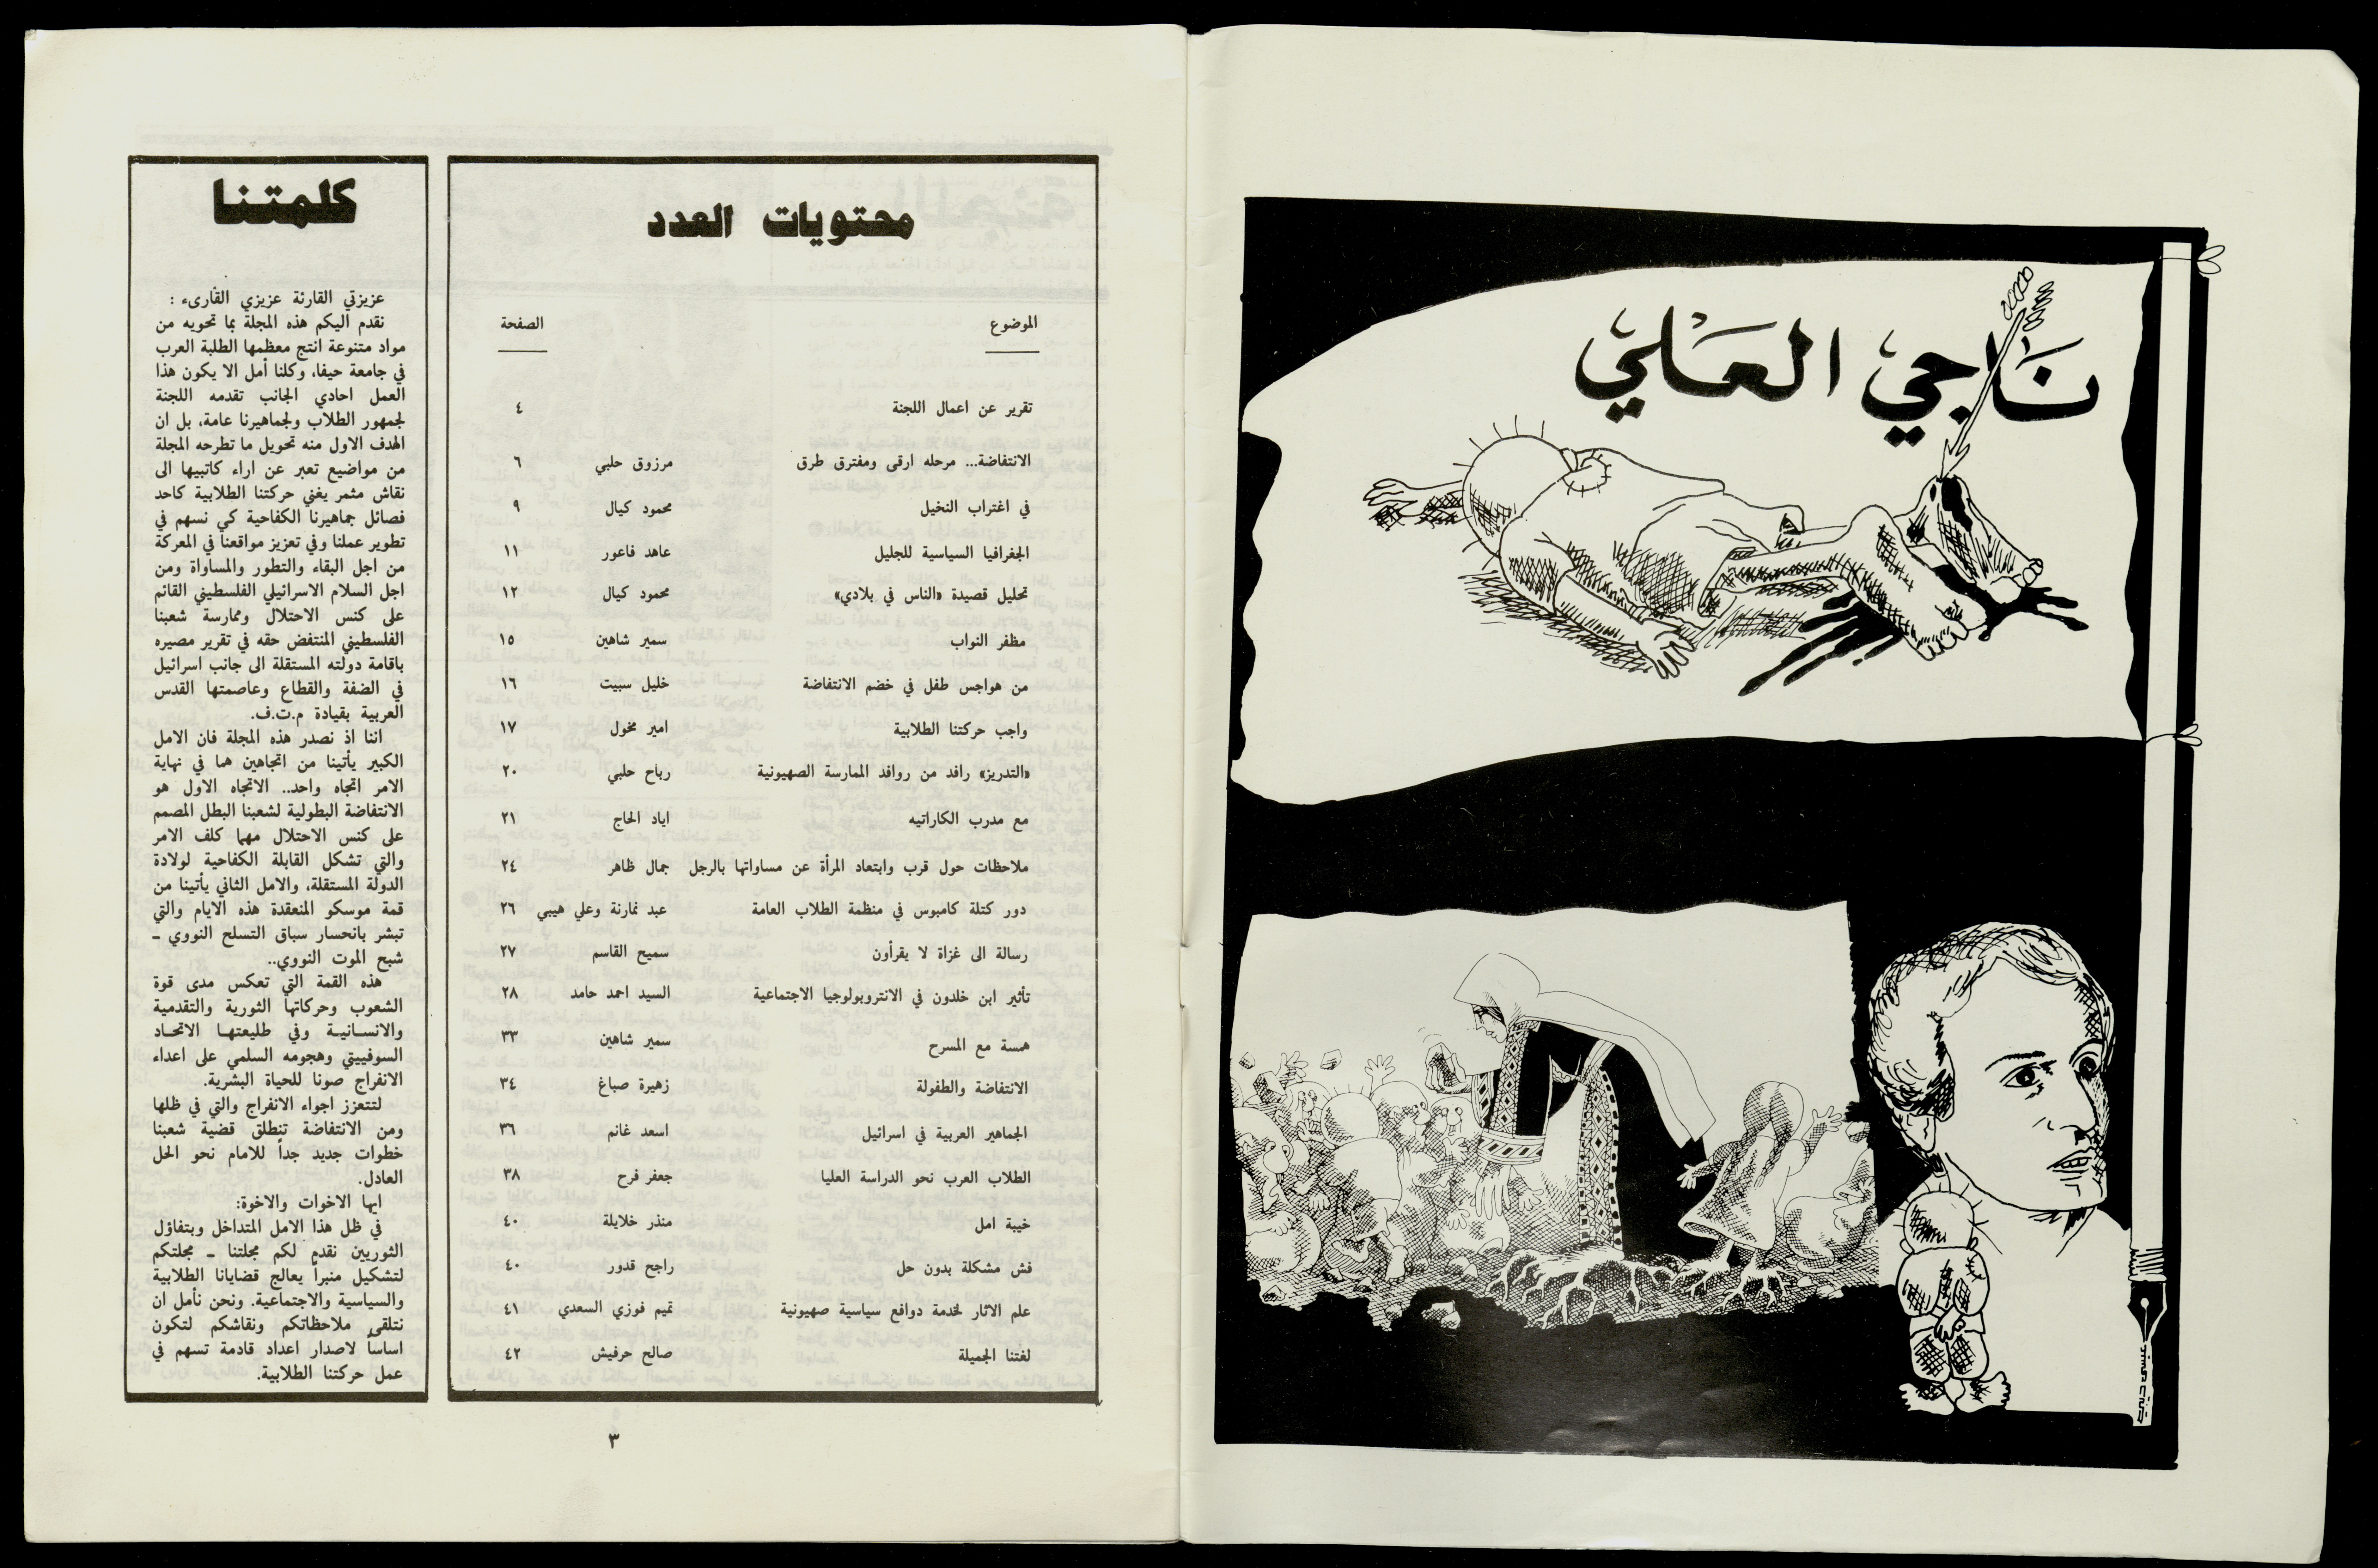 ناجي العلي
محتويات العدد
الموضوع الصفحة
تقرير عن اعمال اللجنة ٤
الانتفاضة... مرحله ارقى ومفترق طرق مرزوق حلبي ٦
في اغتراب النخيل محمود كيال ٩
الجغرافيا السياسية للجليل عاهد فاعور ١١
تحليل قصيدة «الناس في بلادي» محمود كيال ١٢
مظفر النواب سمير شاهين ١٥
من هواجس طفل في خضم الانتفاضة خليل سبيت ١٦
واجب حركتنا الطلابية امير مخول ١٧
«التدريز» رافد من روافد الممارسة الصهيونية رباح حلبي ٢٠
مع مدرب الكاراتيه اياد الحاج ٢١
ملاحظات حول قرب وابتعاد المرأة عن مساواتها بالرجل جمال ظاهر ٢٤
دور كتلة كامبوس في منظمة الطلاب العامة عبد نمارنة وعلي هيبي ٢٦
رسالة الى غزاة لا يقرأون سميح القاسم ٢٧
تأثير ابن خلدون في الانتروبولوجيا الاجتماعية السيد احمد حامد ٢٨
همسة مع المسرح سمير شاهين ٣٣
الانتفاضة والطفولة زهيرة صباغ ٣٤
الجماهير العربية في اسرائيل اسعد غانم ٣٦
الطلاب العرب نحو الدراسة العليا جعفر فرح ٣٨
خيبة امل منذر خلايلة ٤٠
فش مشكلة بدون حل راجح قدور ٤٠
علم الاثار لخدمة دوافع سياسية صهيونية تميم فوزي السعدي ٤١
لغتنا الجميلة صالح حرفيش ٤٢
كلمتنا
عزيزتي القارئة عزيزي القارىء :
نقدم اليكم هذه المجلة بما تحويه من
مواد متنوعة انتج معظمها الطلبة العرب
في جامعة حيفا، وكلنا أمل الا يكون هذا
العمل احادي الجانب تقدمه اللجنة
لجمهور الطلاب ولجماهيرنا عامة، بل ان
الهدف الاول منه تحويل ما تطرحه المجلة
من مواضيع تعبر عن اراء كاتبيها الى
نقاش مثمر يغني حركتنا الطلابية كاحد
فصائل جماهيرنا الكفاحية كي نسهم في
تطوير عملنا وفي تعزيز مواقعنا في المعركة
من اجل البقاء والتطور والمساواة ومن
اجل السلام الاسرائيلي الفلسطيني القائم
على كنس الاحتلال وممارسة شعبنا
الفلسطيني المنتفض حقه في تقرير مصيره
باقامة دولته المستقلة الى جانب اسرائيل
في الضفة والقطاع وعاصمتها القدس
العربية بقيادة م.ت.ف.
اننا اذ نصدر هذه المجلة فان الامل
الكبير يأتينا من اتجاهين هما في نهاية
الامر اتجاه واحد.. الاتجاه الاول هو
الانتفاضة البطولية لشعبنا البطل المصمم
على كنس الاحتلال مهما كلف الامر
والتي تشكل القابلة الكفاحية لولادة
الدولة المستقلة، والامل الثاني يأتينا من
قمة موسكو المنعقدة هذه الايام والتي
تبشر بانحسار سباق التسلح النووي ـ
شبح الموت النووي..
هذه القمة التي تعكس مدى قوة
الشعوب وحركاتها الثورية والتقدمية
والانسانية وفي طليعتها الاتحاد
السوفييتي وهجومه السلمي على اعداء
الانفراج صونا للحياة البشرية.
لتتعزز اجواء الانفراج والتي في ظلها
ومن الانتفاضة تنطلق قضية شعبنا
خطوات جديد جداً للامام نحو الحل
العادل.
ايها الاخوات والاخوة:
في ظل هذا الامل المتداخل وبتفاؤل
الثوريين نقدم لكم مجلتنا ـ مجلتكم
لتشكيل منبراً يعالج قضايانا الطلابية
والسياسية والاجتماعية. ونحن نأمل ان
نتلقى ملاحظاتكم ونقاشكم لتكون
اساساً لاصدار اعداد قادمة تسهم في
عمل حركتنا الطلابية.
٣